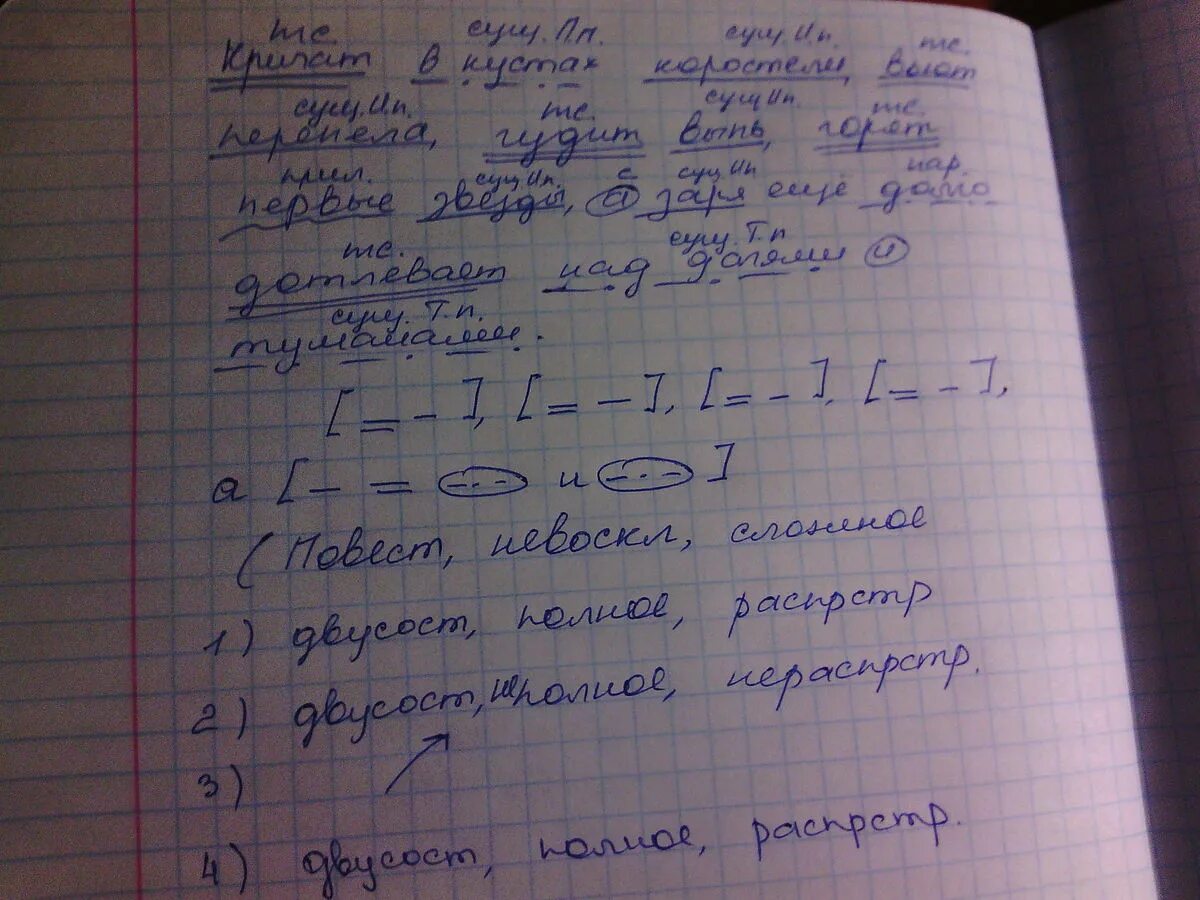 гл. сущ. П.п. сущ. И.п. гл.
Кричат в кустах коростели, вьют
сущ. И.п. гл. сущ И.п. гл.
перепела, гудит выпь, горят
прил. сущ И.п. с сущ И.п нар.
первые звезды, а заря ещё долго
гл. сущ. Т.п
дотлевает над далями и
сущ. Т.п.
туманами.
[= -], [= -], [= -], [= -],
а [- = -.- и -.-]
(Повест, невоскл, сложное
1) двусост, полное, распрстр
2) двусост, неполное, нераспрстр.
3)
4) двусост, полное, распрстр.